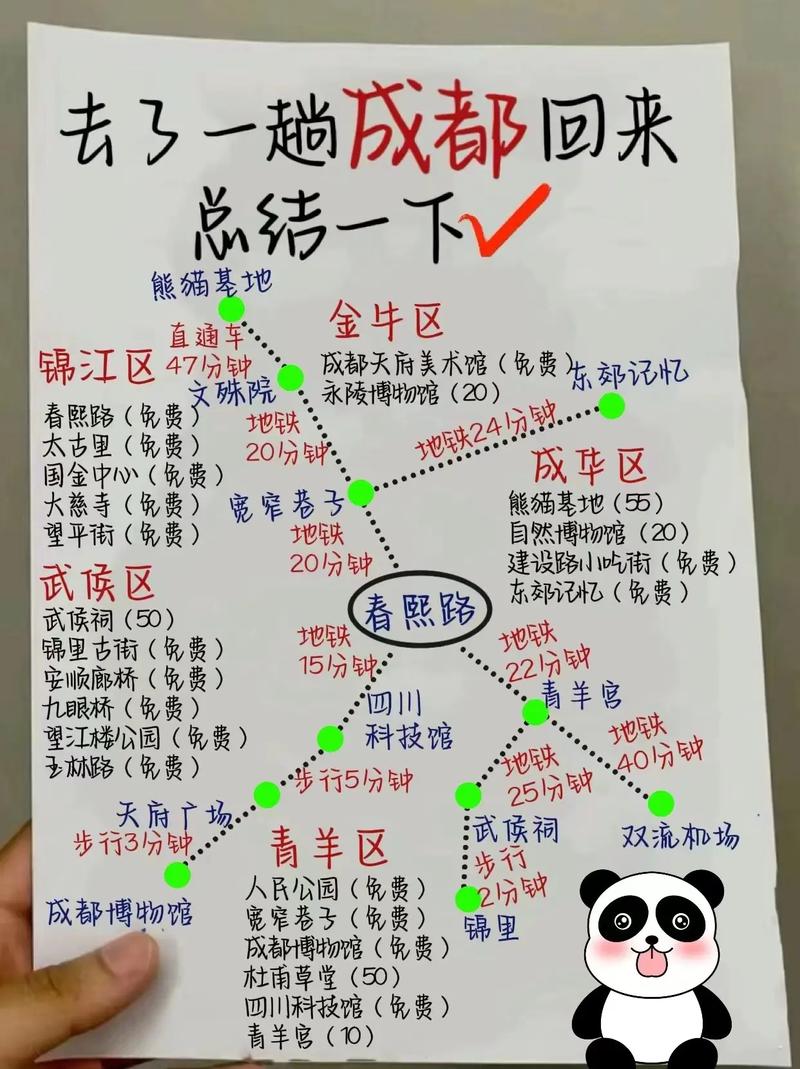 去了一趟成都回来
总结一下
熊猫基地
直通车
47分钟
文殊院
地铁
20分钟
宽窄巷子
地铁
20分钟
春熙路
金牛区
成都天府美术馆（免费）
永陵博物馆（20）
东郊记忆
地铁24分钟
锦江区
春熙路（免费）
太古里（免费）
国金中心（免费）
大慈寺（免费）
望平街（免费）
成华区
熊猫基地（55）
自然博物馆（20）
建设路小吃街（免费）
东郊记忆（免费）
武侯区
武侯祠（50）
锦里古街（免费）
安顺廊桥（免费）
九眼桥（免费）
望江楼公园（免费）
玉林路（免费）
地铁
15分钟
四川
科技馆
步行5分钟
天府广场
步行3分钟
成都博物馆
地铁
22分钟
青羊宫
地铁
40分钟
双流机场
地铁
25分钟
武侯祠
步行
2分钟
锦里
青羊区
人民公园（免费）
宽窄巷子（免费）
成都博物馆（免费）
杜甫草堂（50）
四川科技馆（免费）
青羊宫（10）